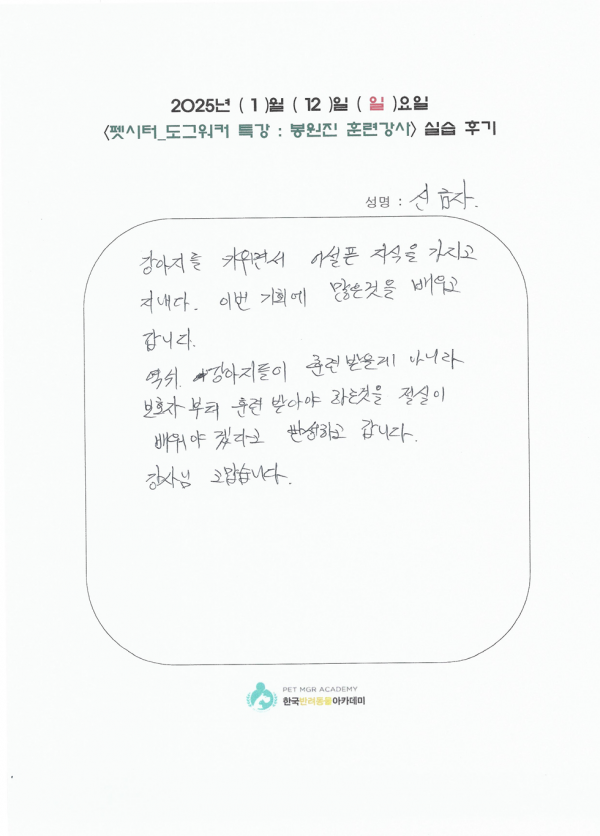 2025년 ( 1 )월 ( 12 )일 ( 일 )요일
<펫시터_도그워커 특강 : 봉원진 훈련강사> 실습 후기
성명 : 신금자.
강아지를 키위련서 어설픈 지식을 가지고
지내다. 이번 기회에 많은것을 배우고
갑니다.
역쉬. 강아지들이 훈련 받은게 아니라
보호자 부터 훈련 받아야 하는것을 절실이
배워야 겠다고 반성하고 갑니다.
강사님 고맙습니다.
PET MGR ACADEMY
한국반려동물아카데미